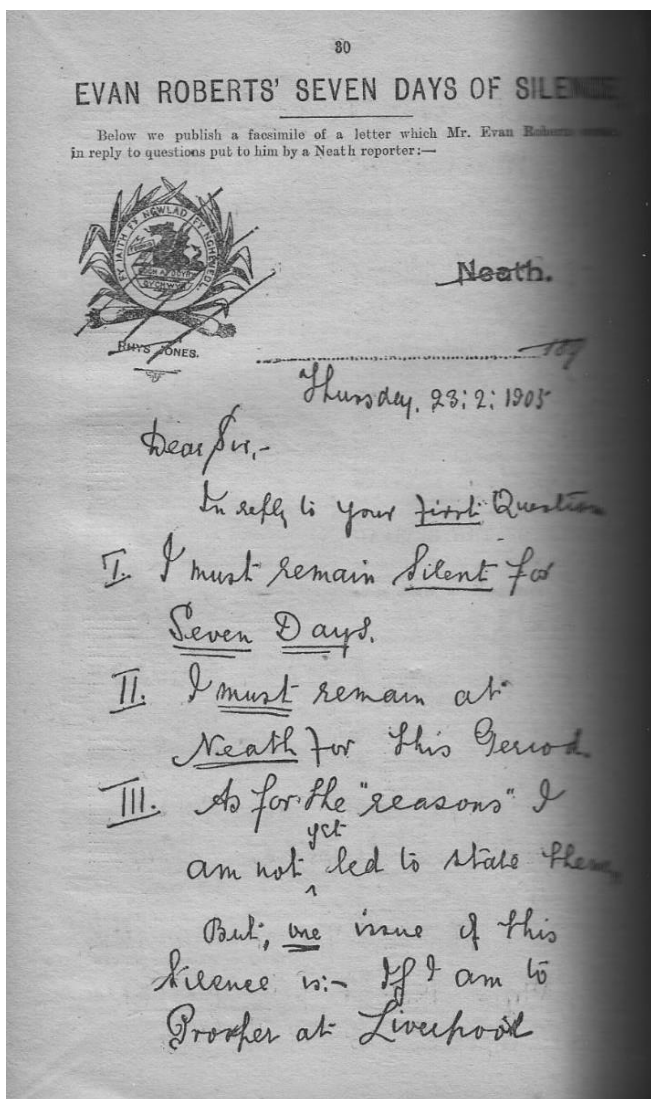 30
EVAN ROBERTS' SEVEN DAYS OF SILENCE
Below we publish a facsimile of a letter which Mr. Evan Roberts
in reply to questions put to him by a Neath reporter:—
FY IAITH FY NGWLAD FY NGHENEDL
RHYS JONES.
Neath.
189
Thursday, 23:2:1905
Dear Sir,-
In reply to your first Question
I. I must remain Silent for
Seven Days.
II. I must remain at
Neath for this Period.
III. As for the "reasons" I
yet
am not led to state them,
But, one issue of this
Silence is:- If I am to
Prosper at Liverpool